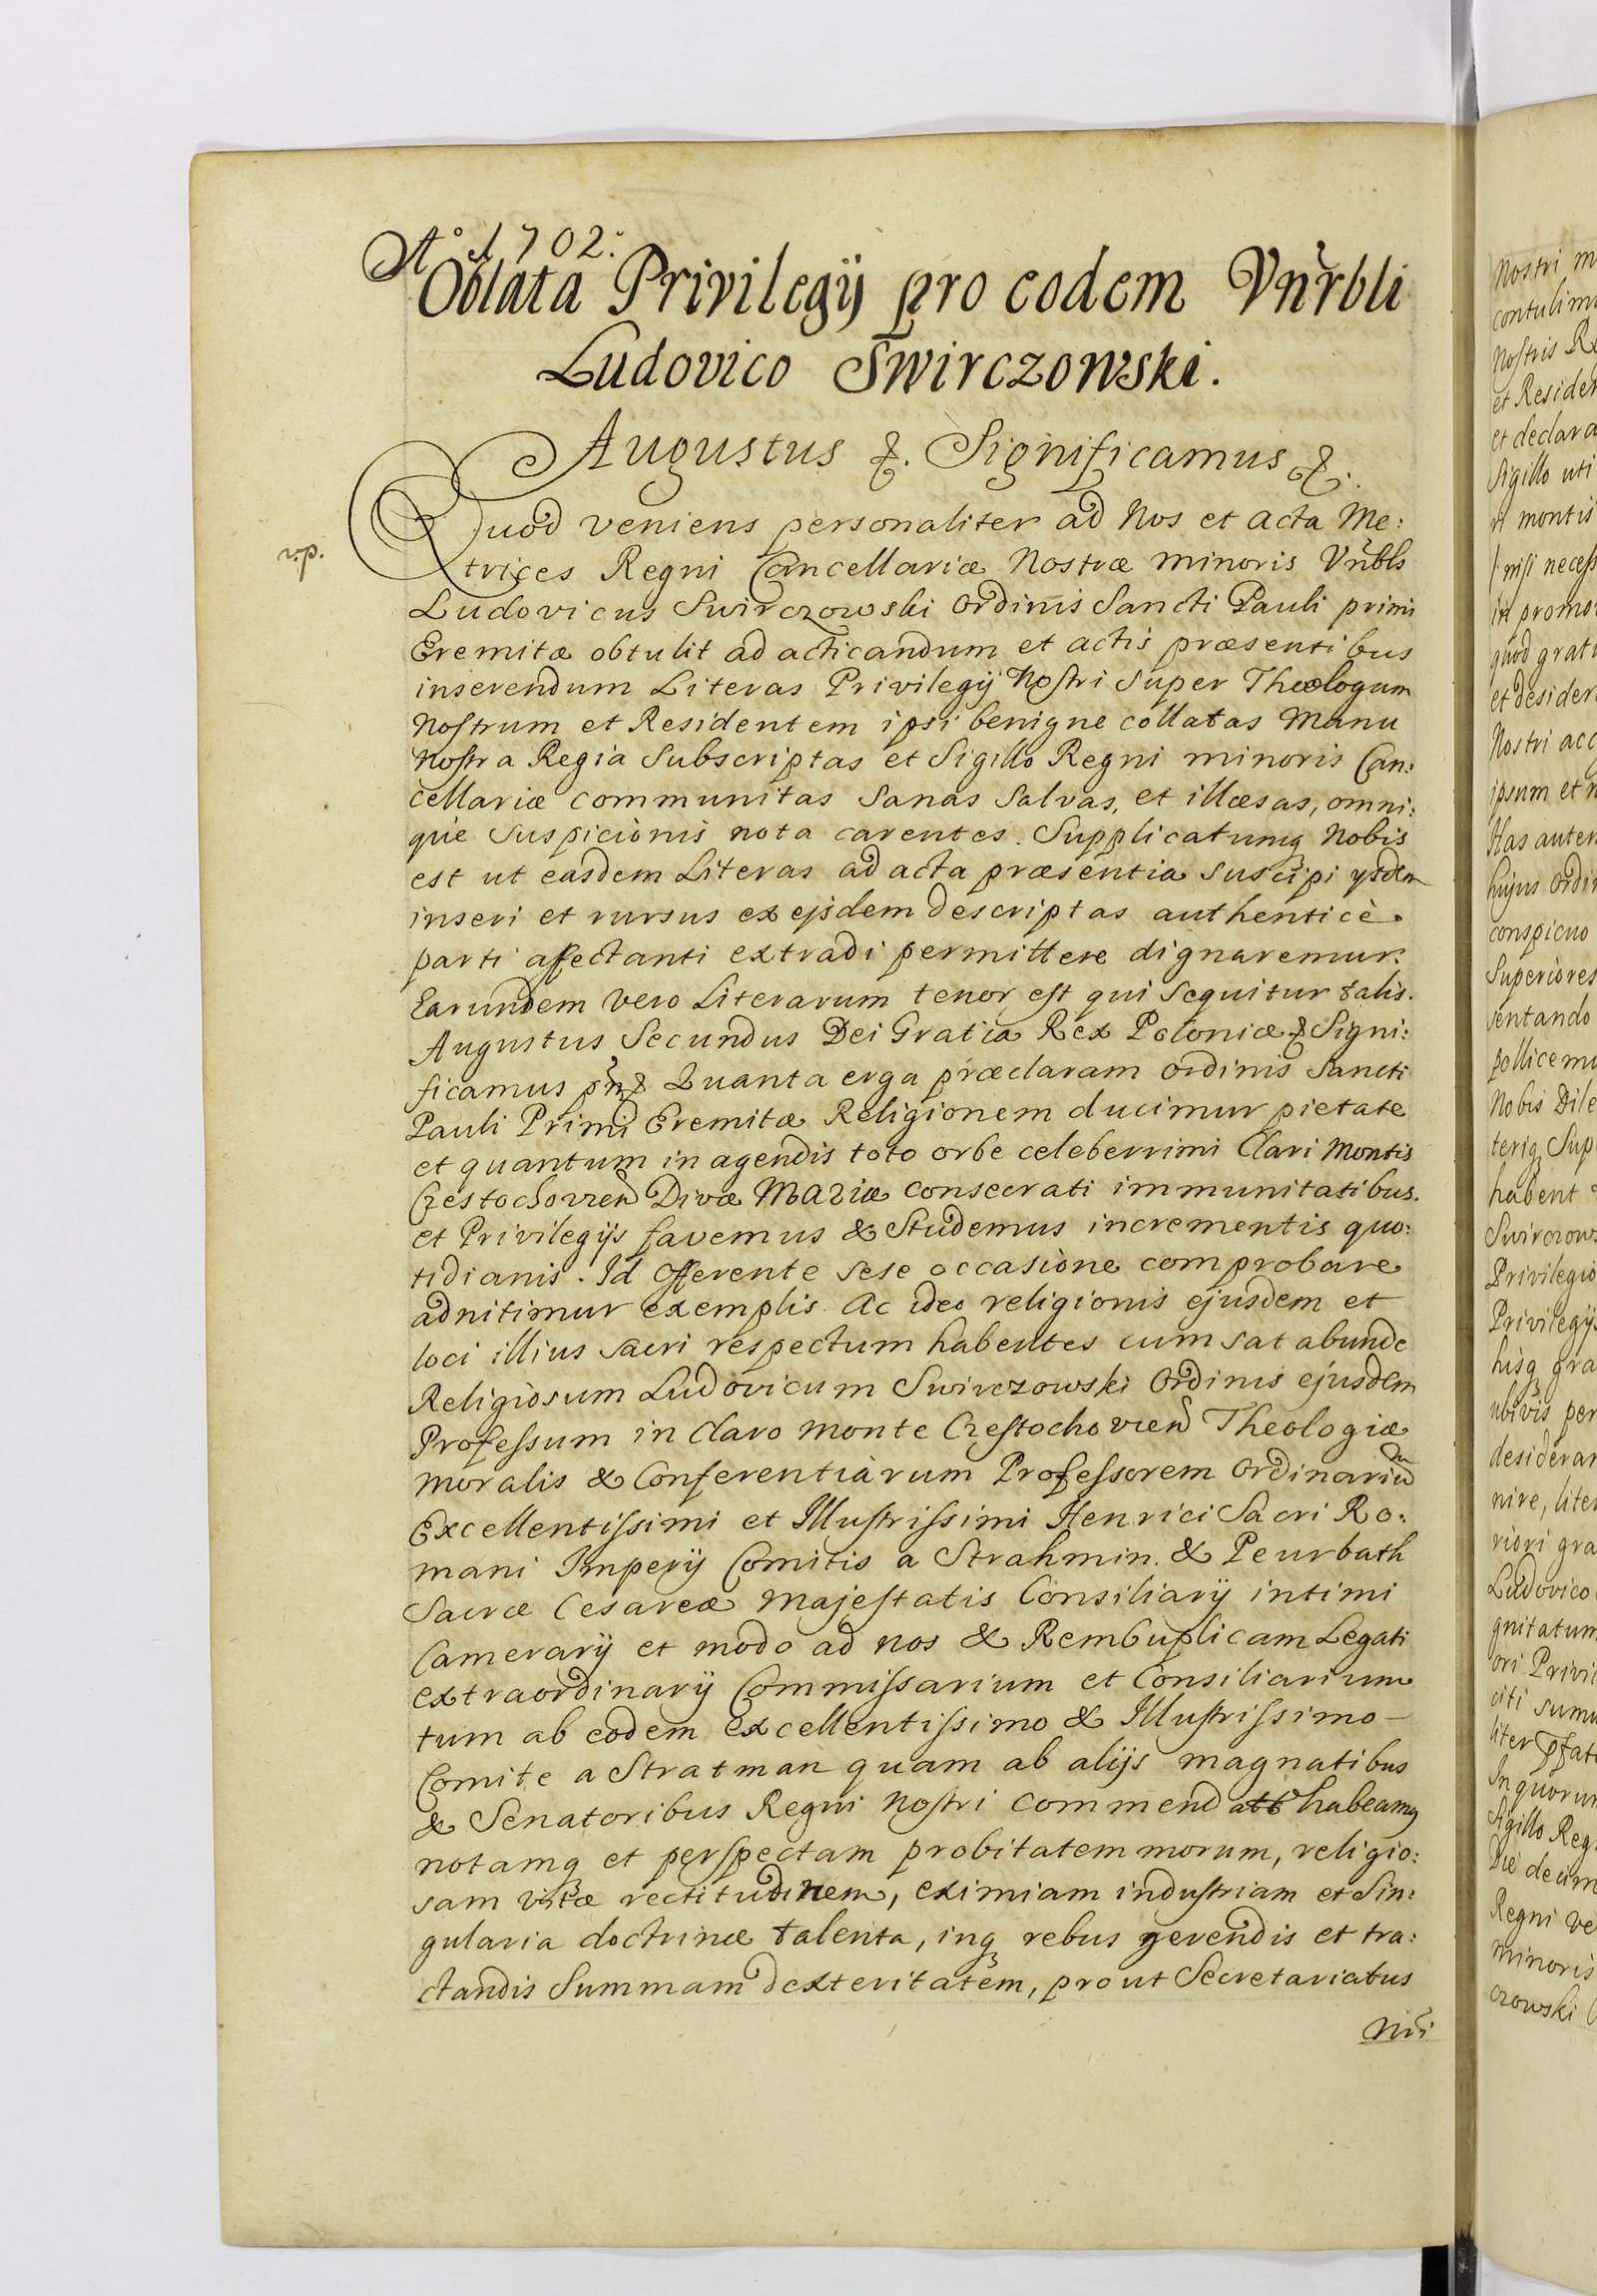 Aº 1702.
Oblata Privilegij pro eodem Vnrbli
Ludovico Swirczowski.
Augustus &. Significamus &.
Quod veniens personaliter ad Nos et acta Me:
r.p.
trices Regni Cancellariæ Nostræ minoris Vnbls
Ludovicus Swirczowski Ordinis Sancti Pauli primi
Eremitæ obtulit ad acticandum et actis præsentibus
inserendum Literas Privilegij Nostri super Theologum
Nostrum et Residentem ipsi benigne collatas Manu
Nostra Regia Subscriptas et Sigillo Regni minoris Can:
cellariæ communitas Sanas Salvas, et illæsas, omni:
que suspicionis nota carentes. Supplicatumq nobis
est ut easdem Literas ad acta præsentia suscipi ysdem
inseri et rursus ex ejsdem descriptas authenticè
parti affectanti extradi permittere dignaremur.
Earundem vero Literarum tenor est qui sequitur talis.
Augustus Secundus Dei Gratia Rex Poloniæ & Signi:
ficamus pñ& Quanta erga præclaram ordinis Sancti
Pauli Primi Eremitæ Religionem ducimur pietate
et quantum in agendis toto orbe celeberrimi Clari Montis
Czestochovien Divæ Mariæ consecrati immunitatibus.
et Privilegijs favemus & Studemus incrementis quo:
tidianis. Id offerente sese occasione comprobare
adnitimur exemplis Ac ideo religionis ejusdem et
loci illius sacri respectum habentes cum sat abunde
Religiosum Ludovicum Swirczowski Ordinis ejusdem
Professum in Claro Monte Czestochovien Theologiæ
Moralis & Conferentiarum Professorem Ordinariũ
Excellentissimi et Illustrissimi Henrici Sacri Ro:
mani Imperij Comitis a Strahmin. & Peurbath
Sacræ Cesareæ Majestatis Consiliarij intimi
Camerarij et modo ad nos & Rembuplicam Legati
extraordinarij Commissarium et Consiliarium
tum ab eodem excellentissimo & Illustrissimo
Comite a Stratman quam ab alijs magnatibus
& Senatoribus Regni Nostri commend habeamq
notamq et perspectam probitatem morum, religio:
sam vitæ rectitudinem, eximiam industriam et Sin:
gularia doctrinæ talenta, inq rebus gerendis et tra:
ctandis Summam dexteritatem, prout Secretariatus
Nri